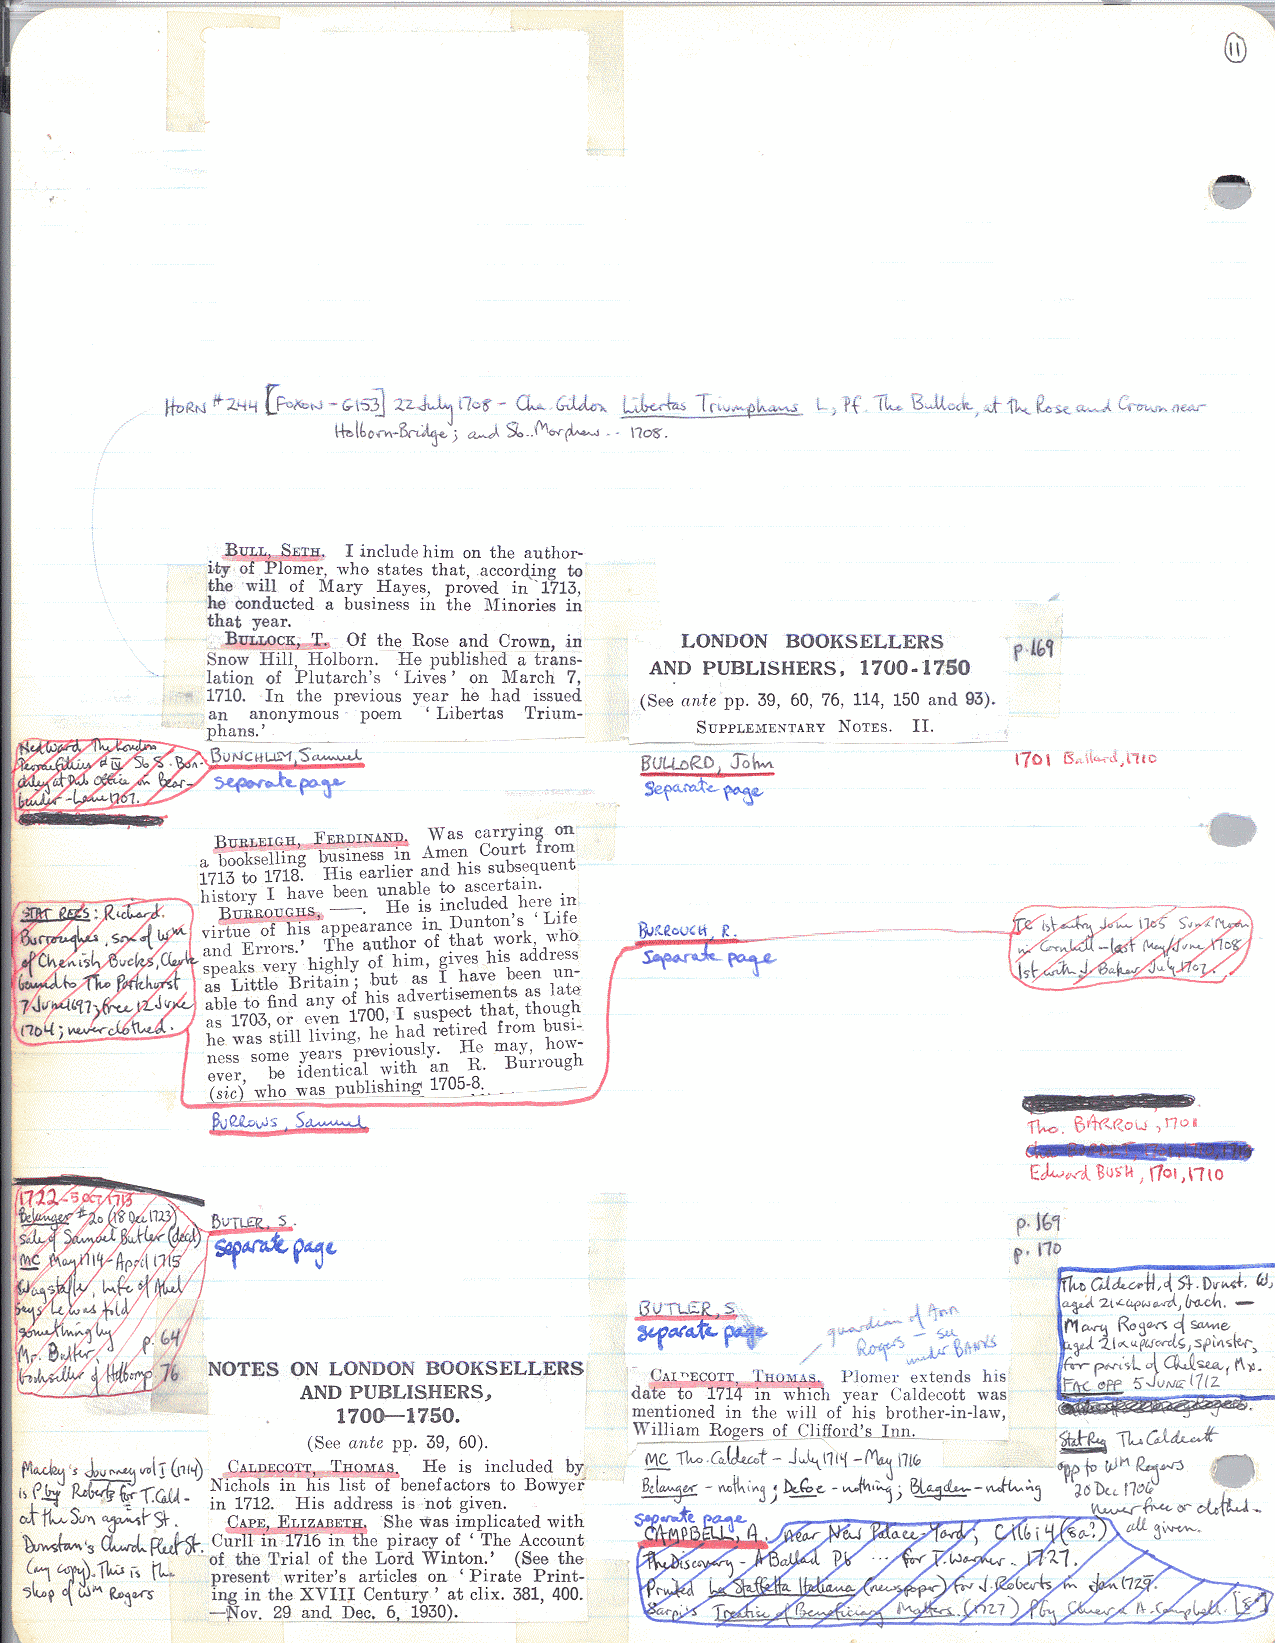 11
HORN #244 [FOXON - G153] 22 July 1708 - Cha. Gildon Libertas Triumphans L, Pf. Tho Bullock, at the Rose and Crown near
Holborn-Bridge; and Sb.. Morphew.. 1708.
BULL, SETH. I include him on the author-
ity of Plomer, who states that, according to
the will of Mary Hayes, proved in 1713,
he conducted a business in the Minories in
that year.
BULLOCK, T. Of the Rose and Crown, in
Snow Hill, Holborn. He published a trans-
lation of Plutarch's 'Lives' on March 7,
1710. In the previous year he had issued
an anonymous poem 'Libertas Trium-
phans.'
LONDON BOOKSELLERS
AND PUBLISHERS, 1700-1750
(See ante pp. 39, 60, 76, 114, 150 and 93).
SUPPLEMENTARY NOTES. II.
p.169
Ned Ward The London
Terraefilius # IV Sb S. Bun-
chley at Pub Office in Bear-
binder-Lane 1707.
BUNCHLEM, Samuel
separate page
BULLORD, John
Separate page
1701 Ballard, 1710
BURLEIGH, FERDINAND. Was carrying on
a bookselling business in Amen Court from
1713 to 1718. His earlier and his subsequent
history I have been unable to ascertain.
BURROUGHS, ——. He is included here in
virtue of his appearance in Dunton's 'Life
and Errors.' The author of that work, who
speaks very highly of him, gives his address
as Little Britain; but as I have been un-
able to find any of his advertisements as late
as 1703, or even 1700, I suspect that, though
he was still living, he had retired from busi-
ness some years previously. He may, how-
ever, be identical with an R. Burrough
(sic) who was publishing 1705-8.
STAT REGS: Richard
Burroughes, son of Wm
of Chenish Bucks, Clerk
bound to Tho Parkhurst
7 June 1697; free 12 June
1704; never clothed.
BURROUGH, R.
Separate page
TC 1st entry June 1705 Sun & Moon
in Cornhill - last May/June 1708
1st with J. Baker July 1707.
BURROWS, Samuel
Tho. BARROW, 1701
Edward BUSH, 1701, 1710
1722 - 5 OCT 1713
Belanger #20 (18 Dec 1723)
sale of Samuel Butler (decd)
MC May 1714 - April 1715
Wagstaffe, Life of Abel
says he was told
something by
Mr. Butler
bookseller of Holborn
p. 64
76
BUTLER, S.
separate page
p. 169
p. 170
BUTLER, S
separate page
guardian of Ann
Rogers - see
under BANKS
Tho Caldecott, of St. Dunst. W,
aged 21 & upward, bach. —
Mary Rogers of same
aged 21 & upwards, spinster,
for parish of Chelsea, Mx.
FAC OFF 5 JUNE 1712
NOTES ON LONDON BOOKSELLERS
AND PUBLISHERS,
1700—1750.
(See ante pp. 39, 60).
CALDECOTT, THOMAS. He is included by
Nichols in his list of benefactors to Bowyer
in 1712. His address is not given.
CAPE, ELIZABETH. She was implicated with
Curll in 1716 in the piracy of 'The Account
of the Trial of the Lord Winton.' (See the
present writer's articles on 'Pirate Print-
ing in the XVIII Century' at clix. 381, 400.
—Nov. 29 and Dec. 6, 1930).
CALDECOTT, THOMAS. Plomer extends his
date to 1714 in which year Caldecott was
mentioned in the will of his brother-in-law,
William Rogers of Clifford's Inn.
MC Tho. Caldecot - July 1714 - May 1716
Belanger - nothing; Defoe - nothing; Blagden - nothing
Stat Reg Tho Caldecott
app to Wm Rogers
20 Dec 1706
never free or clothed -
all given.
Macky's Journey vol I (1714)
is P by Roberts for T. Cald-
at the Sun against St.
Dunstan's Church Fleet St.
(my copy). This is the
shop of Wm Rogers
separate page
CAMPBELL, A. near New Palace-Yard; C116 i 4 (8a?)
The Discovery - A Ballad Pb ... for T. Warner.. 1727.
Printed La Staffetta Italiana (newspaper) for J. Roberts in Jan 1729.
Sarpi's Treatise of Beneficiary Matters.. (1727) P by A. Campbell.